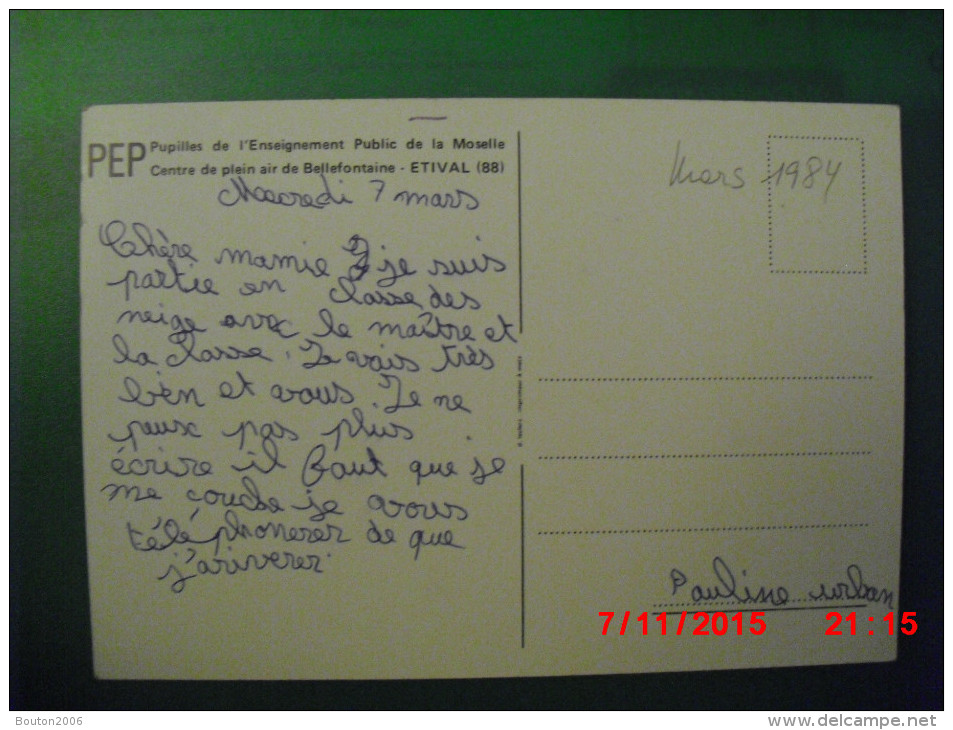 PEP Pupilles de l'Enseignement Public de la Moselle
Centre de plein air de Bellefontaine - ETIVAL (88)
Mecredi 7 mars
Chère mamie je suis
partie en classe des
neige avec le maître et
la classe. Je vais très
bien et vous. Je ne
peux pas plus
écrire il faut que je
me couche je vous
téléphonerer de que
j'ariverer.
Mars 1984
Pauline urban
7/11/2015 21:15
Bouton2006
www.delcampe.net